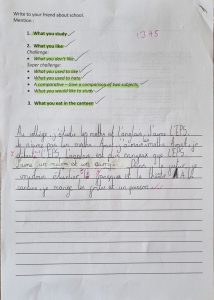 Write to your friend about school.
Mention :
1. What you study
2. What you like
Challenge:
• What you don't like
Super challenge:
• What you used to like
• What you used to hate
• A comparative – Give a comparison of two subjects
• What you would like to study
3. What you eat in the canteen
Au collège, j'étudie les maths et l'anglais. J'aime l'EPS
Je n'aime pas les maths. Avant, j'aimais maths. Avant, je
détestais l'EPS. L'anglais est plus que l'EPS
j'aime
voudrais étudier le français et le théâtre. À la
cantine, je mange les frites et un poisson